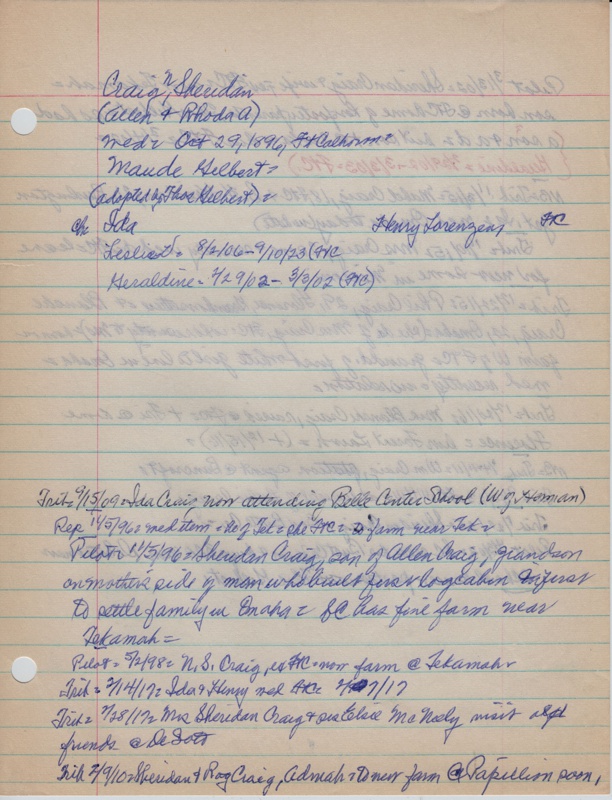 Craig, N, Sheridan
(Allen & Rhoda A)
med= Oct 29, 1896, Ft Calhoun=
Maude Gilbert=
(adopted by Thos Gilbert)=
Ch: Ida Henry Lorenzen FC
Leslie = 8/2/06-9/10/23 (FC
Geraldine= 1/29/02-3/3/02 (FC)
Trib= 9/15/09= Ida Craig now attending Belle Center School (W of Homan)
Rep 11/5/96= med item= He of Tek= she FC= farm near Tek=
Pilot= 11/5/96= Sheridan Craig, son of Allen Craig, grandson
on mothers side of man who built first log cabin & first
to settle family in Omaha= SC has fine farm near
Tekamah=
Pilot= 5/2/98= N.S. Craig, ex FC= now farm @ Tekamah=
Trib= 2/14/17= Ida & Henry med FC= 2/7/17
Trib= 7/28/17= Mrs Sheridan Craig & sis Elsie McNeely visit
friends @ DeSoto
Trib 2/9/10= Sheridan & Roy Craig, Admah= to new farm @ Papillion soon,